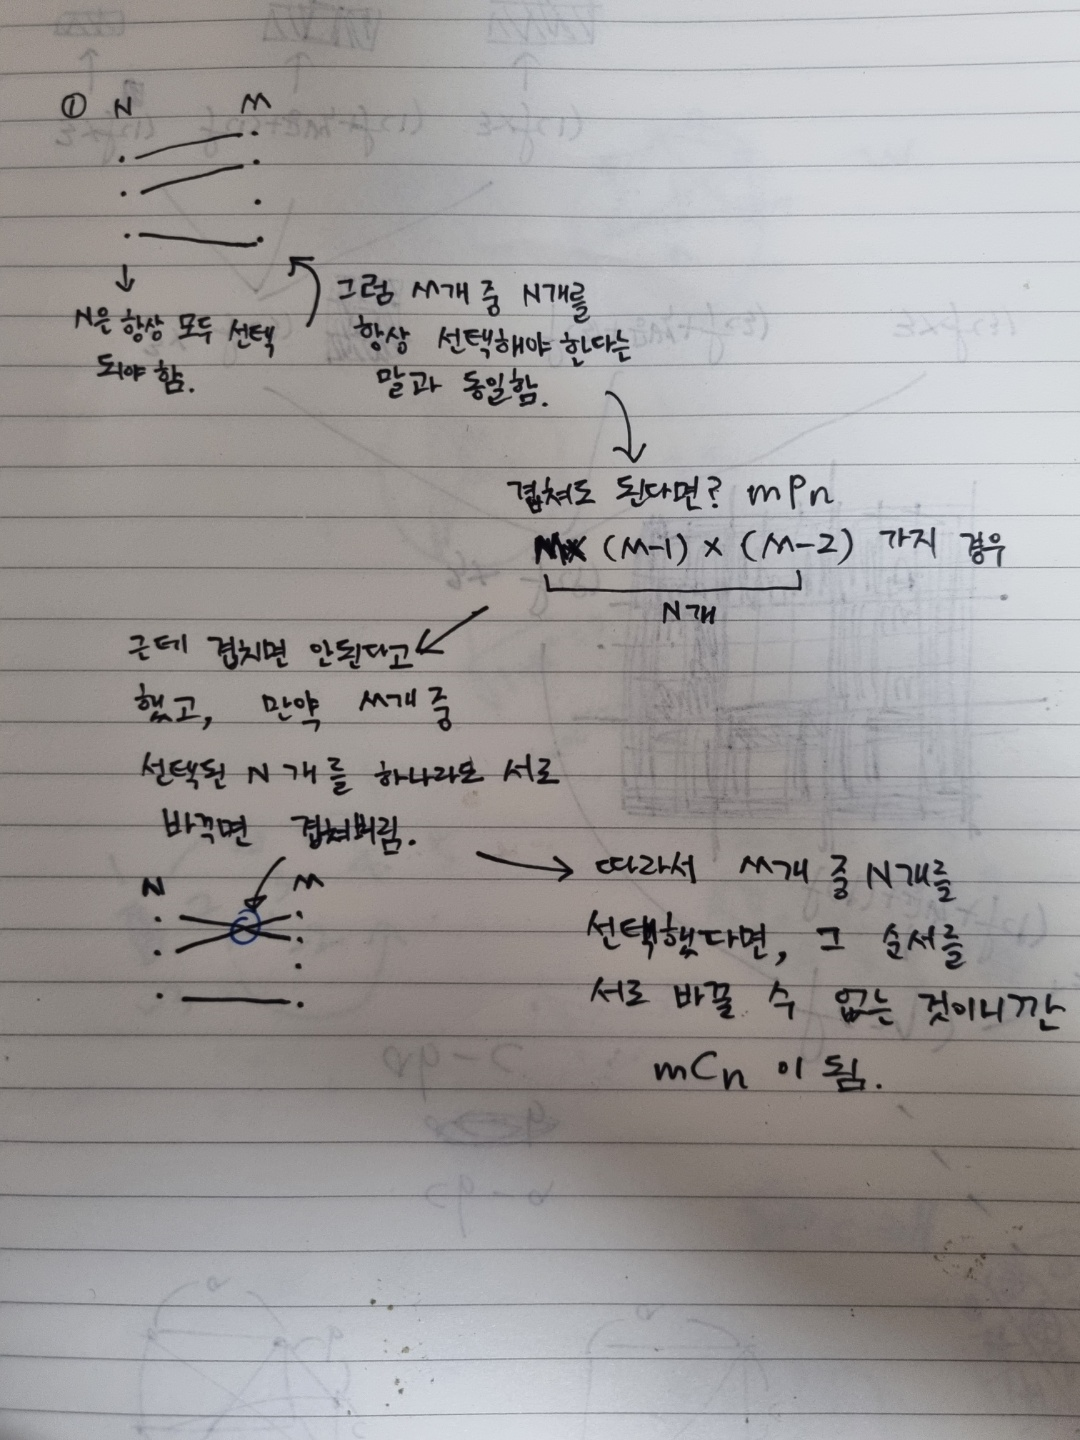 ① N M
N은 항상 모두 선택
되야 함.
그럼 M개 중 N개를
항상 선택해야 한다는
말과 동일함.
겹쳐도 된다면? mPn
M× (M-1) × (M-2) 가지 경우
N개
근데 겹치면 안된다고
했고, 만약 M개 중
선택된 N개를 하나라도 서로
바꾹면 겹쳐버림.
N M
따라서 M개 중 N개를
선택했다면, 그 순서를
서로 바꿀 수 없는 것이니깐
mCn 이 됨.